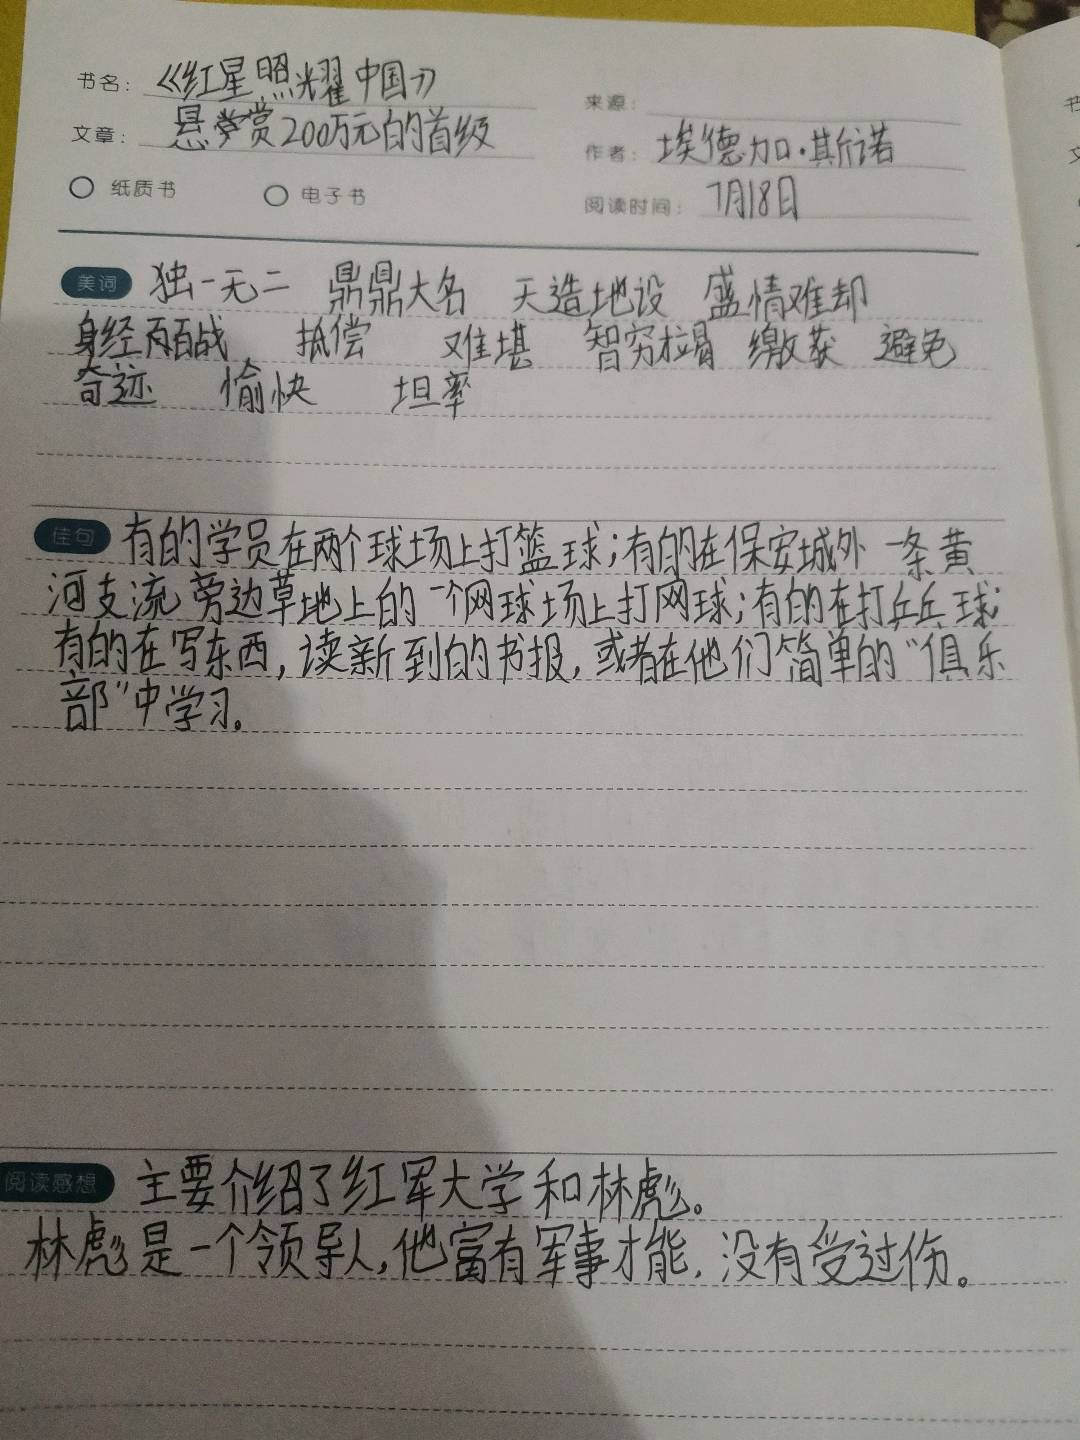 书名：《红星照耀中国》
来源：
文章：悬赏200万元的首级
作者：埃德加·斯诺
纸质书 电子书
阅读时间：7月18日
美词 独一无二 鼎鼎大名 天造地设 盛情难却
身经百战 抵偿 难堪 智穷才竭 缴获 避免
奇迹 愉快 坦率
佳句 有的学员在两个球场上打篮球;有的在保安城外一条黄
河支流旁边草地上的一个网球场上打网球;有的在打乒乓球;
有的在写东西,读新到的书报,或者在他们简单的“俱乐
部”中学习。
阅读感想 主要介绍了红军大学和林彪。
林彪是一个领导人,他富有军事才能,没有受过伤。